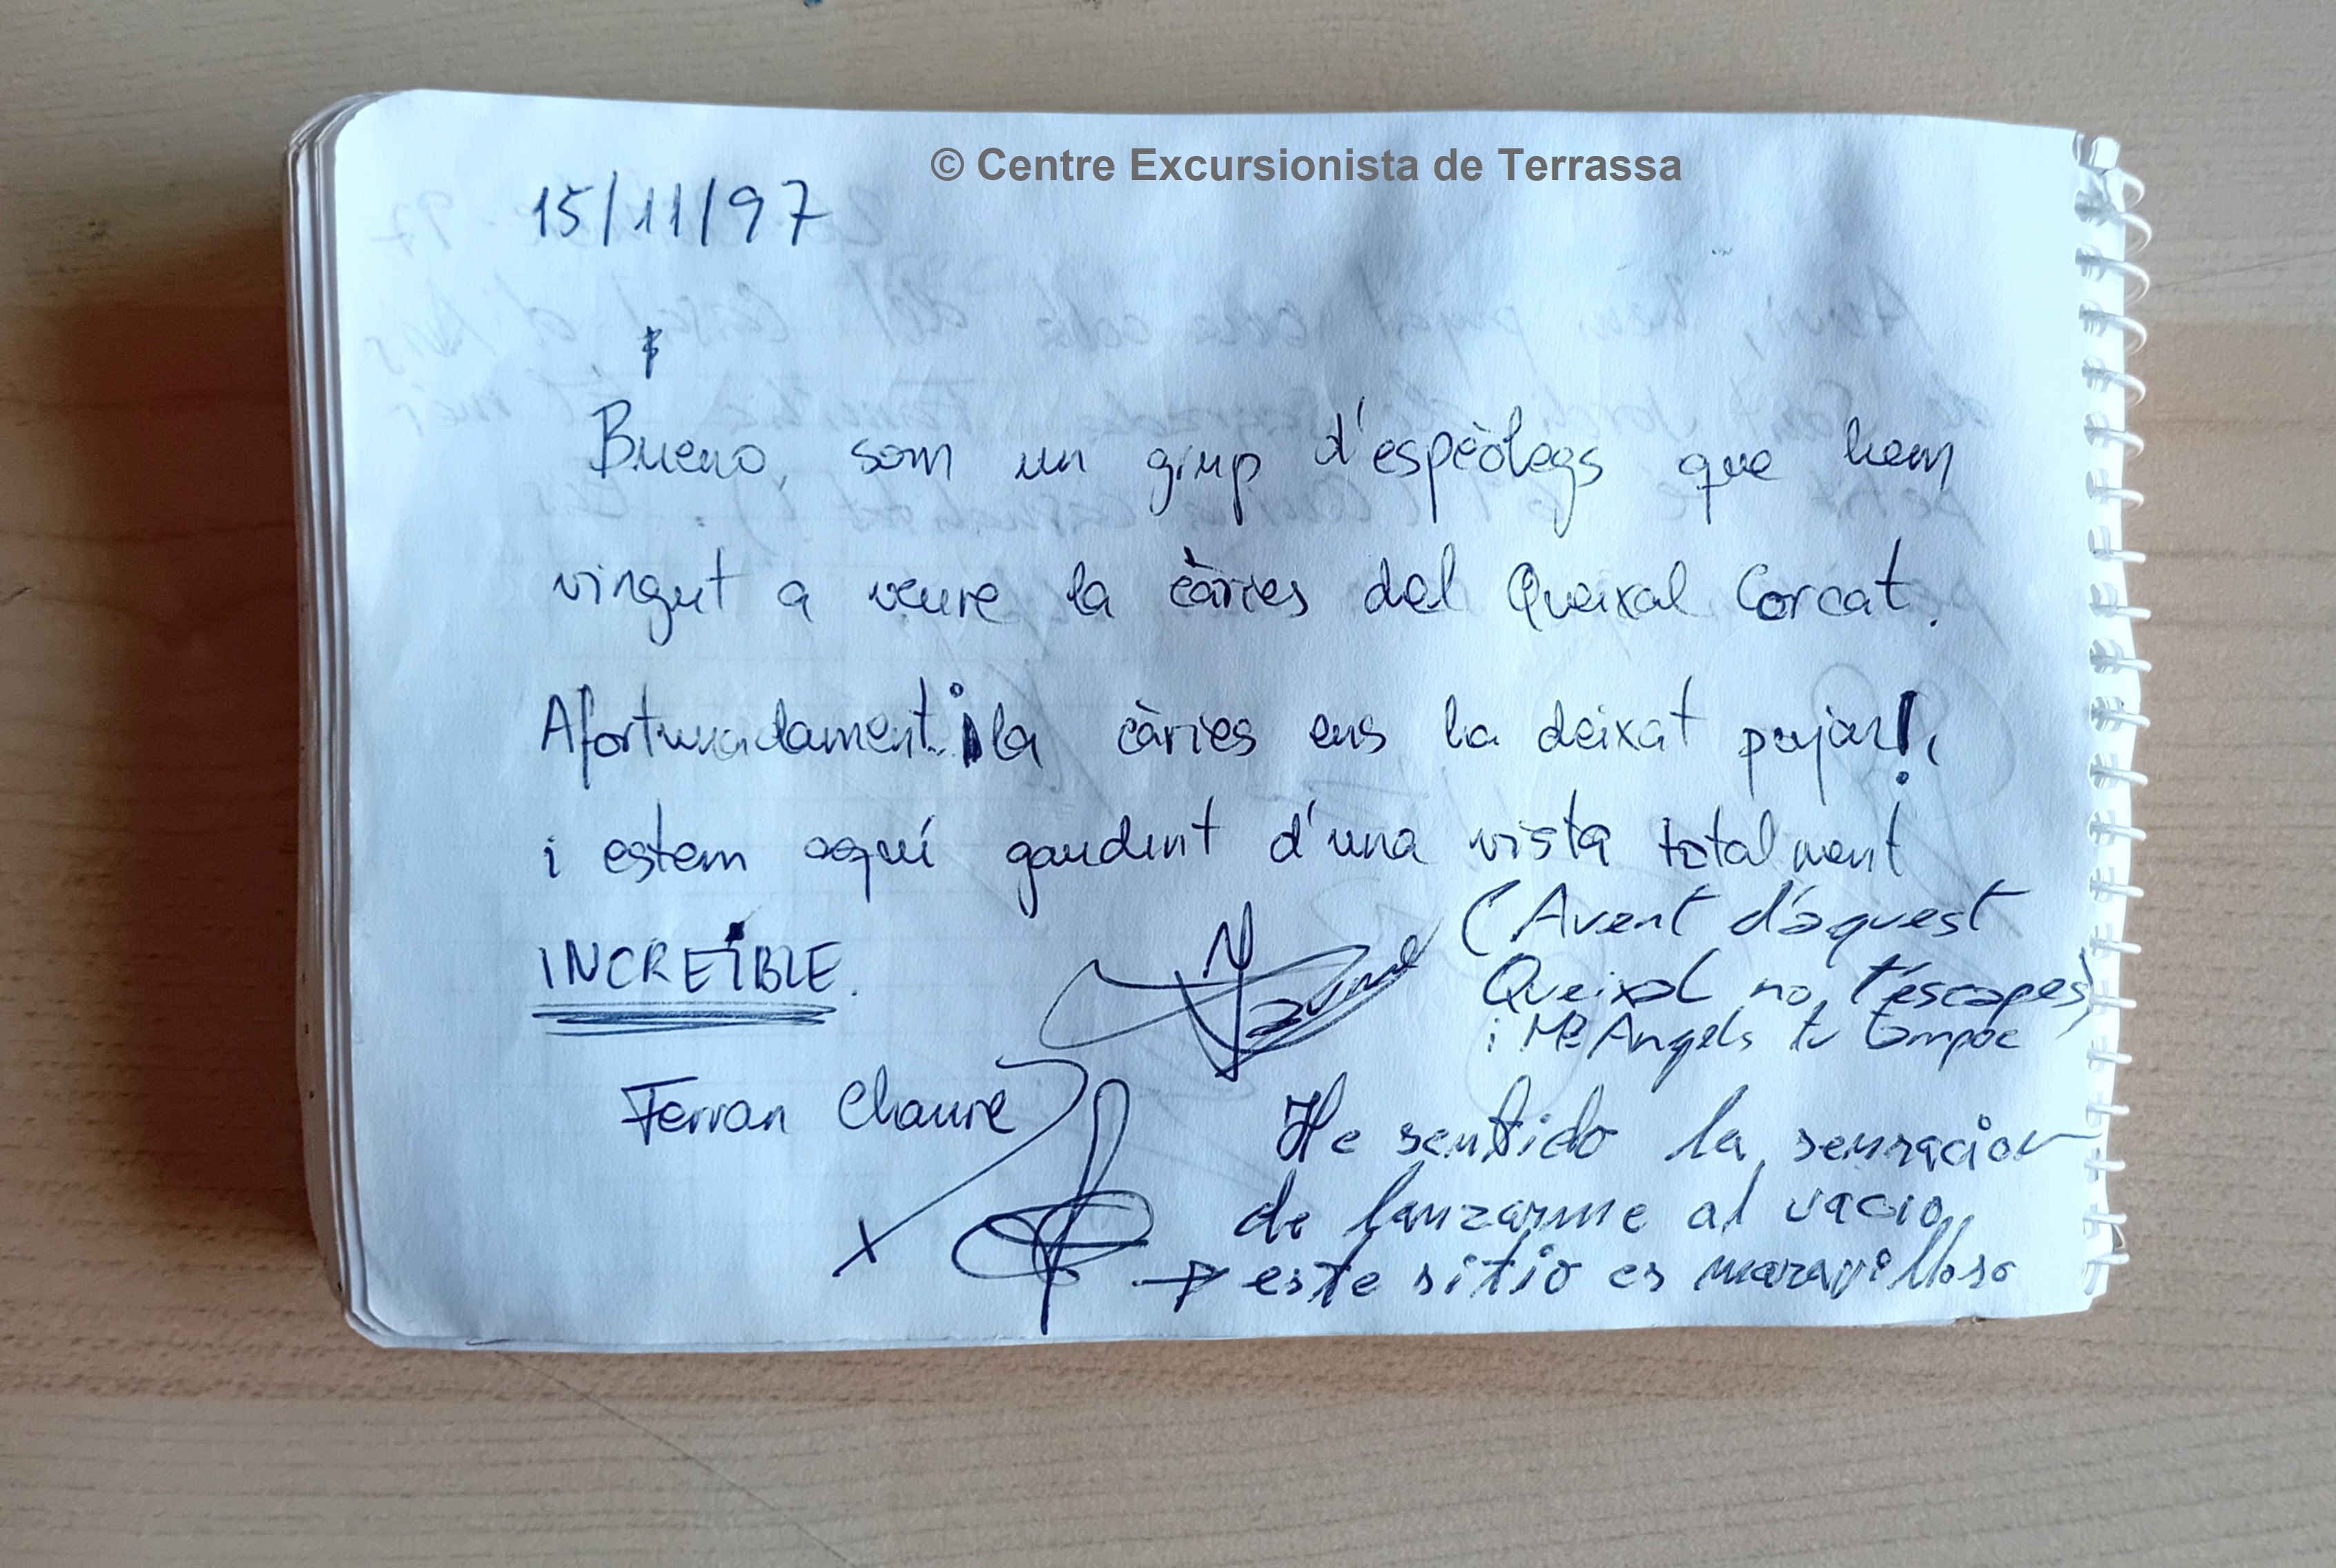 © Centre Excursionista de Terrassa
15/11/97
Bueno, som un grup d'espeòlegs que hem
vingut a veure la càries del Queixal Corcat.
Afortunadament ¡la càries ens ha deixat pujar!,
i estem aquí gaudint d'una vista totalment
INCREÏBLE.
(Avent d'aquest
Queixal no t'escapes)
i Mª Angels tu tampoc
Ferran Chaure
He sentido la sensacion
de lanzarme al vacio,
este sitio es maravilloso